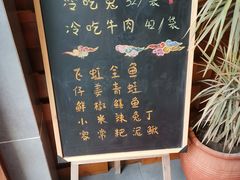 冷吃兔 32/袋
冷吃牛肉 42/袋
飞虹全鱼
仔姜青蛙
鲜椒鳝鱼
小米辣兔丁
客常粑泥鳅